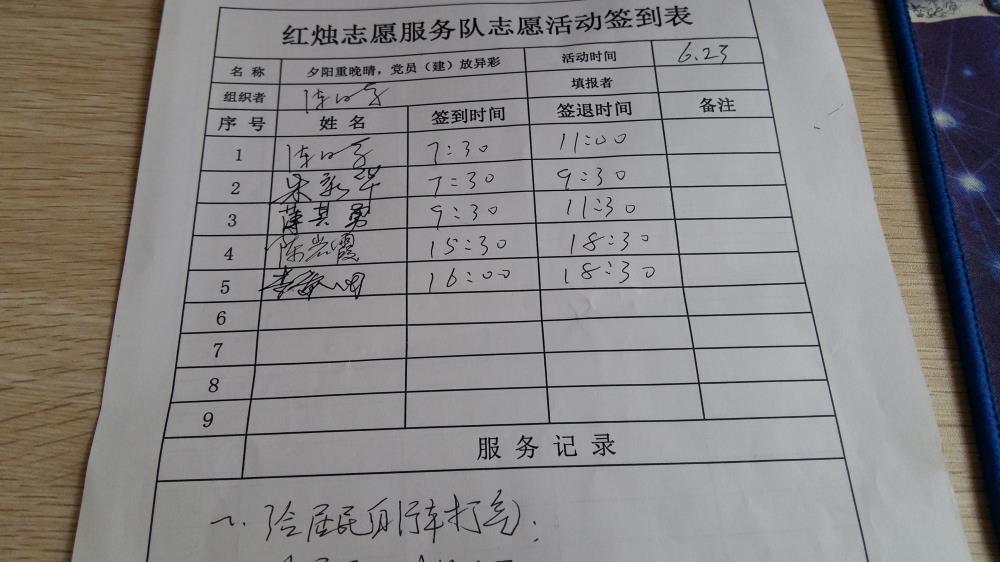 红烛志愿服务队志愿活动签到表
名 称 夕阳重晚晴，党员（建）放异彩 活动时间 6.23
组织者 填报者
序 号 姓 名 签到时间 签退时间 备注
1 7:30 11:00
2 朱新华 7:30 9:30
3 薄其勇 9:30 11:30
4 陈岩霞 15:30 18:30
5 16:00 18:30
6
7
8
9
服 务 记 录
一、给居民自行车打气.